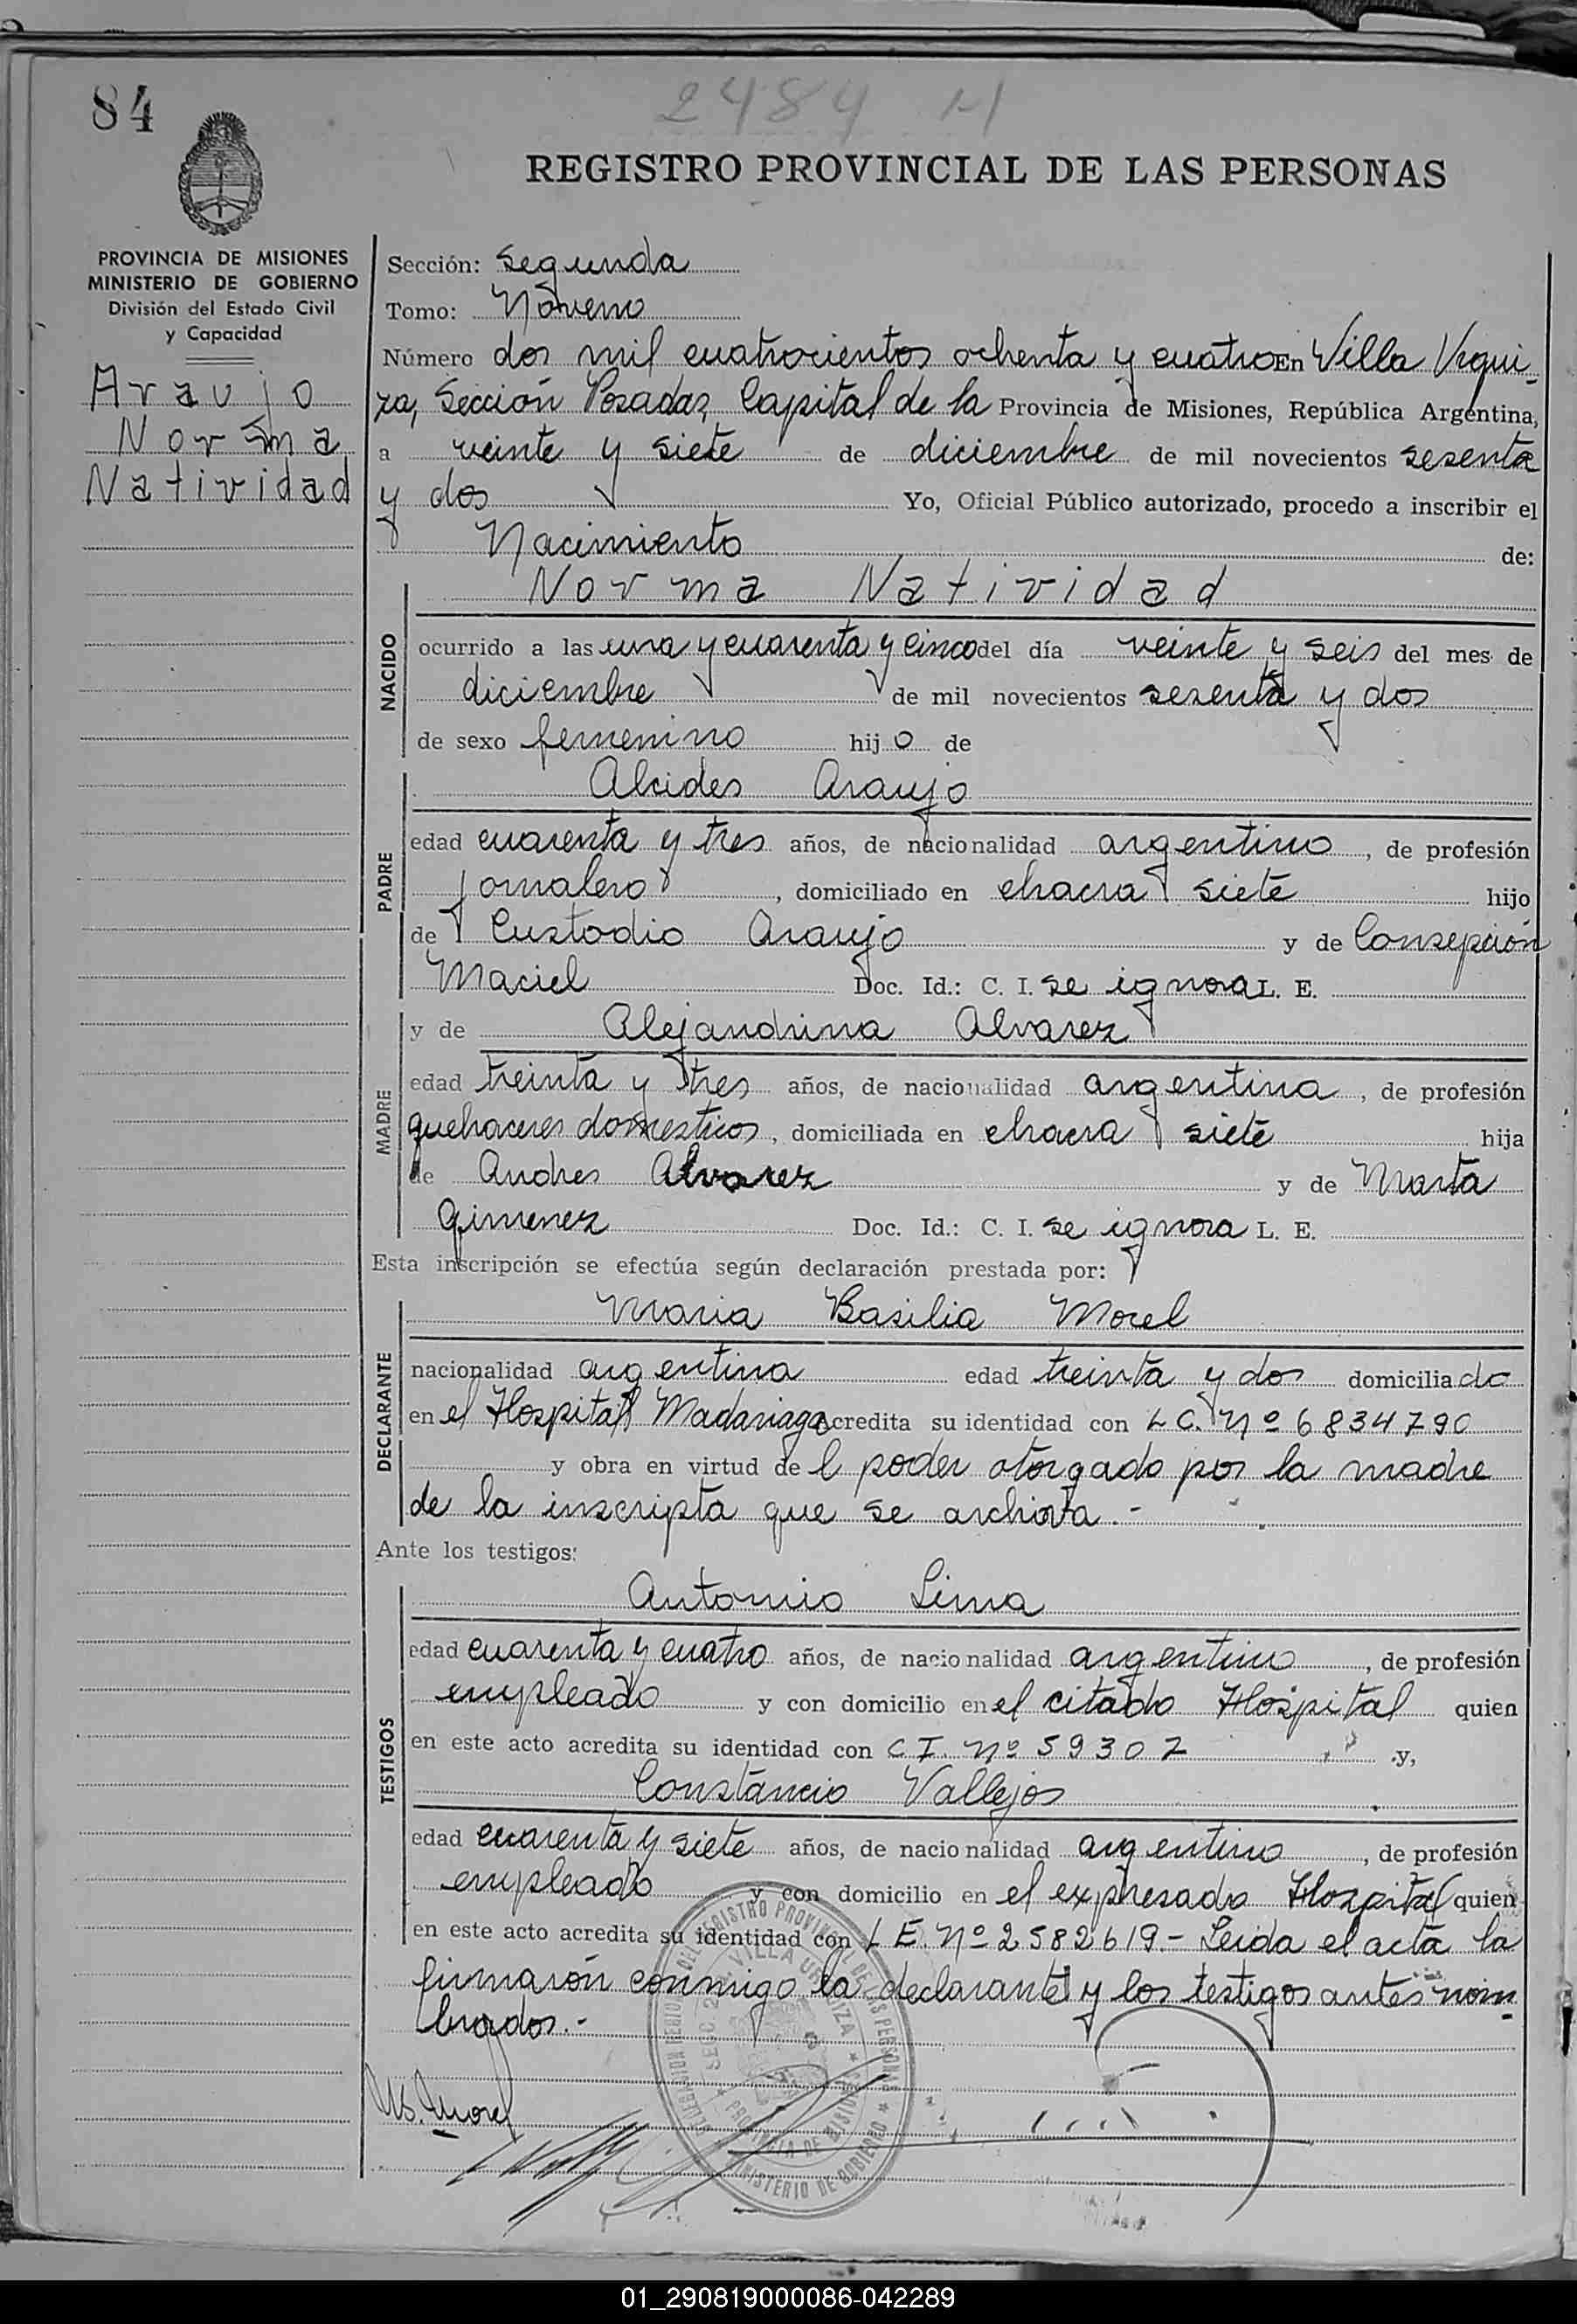 84
2484 N
REGISTRO PROVINCIAL DE LAS PERSONAS
PROVINCIA DE MISIONES
MINISTERIO DE GOBIERNO
División del Estado Civil
y Capacidad
Araujo
Norma
Natividad
Sección: Segunda
Tomo: Noveno
Número dos mil cuatrocientos ochenta y cuatro En Villa Urqui-
za, Sección Posadas, Capital de la Provincia de Misiones, República Argentina,
a veinte y siete de diciembre de mil novecientos sesenta
y dos Yo, Oficial Público autorizado, procedo a inscribir el
Nacimiento de:
NACIDO
Norma Natividad
ocurrido a las una y cuarenta y cinco del día veinte y seis del mes de
diciembre de mil novecientos sesenta y dos
de sexo femenino hijo de
PADRE
Alcides Araujo
edad cuarenta y tres años, de nacionalidad argentino, de profesión
jornalero, domiciliado en chacra siete hijo
de Custodio Araujo y de Consepción
Maciel Doc. Id.: C. I. se ignora L. E.
MADRE
y de Alejandrina Alvarez
edad treinta y tres años, de nacionalidad argentina, de profesión
quehaceres domesticos, domiciliada en chacra siete hija
de Andres Alvarez y de Marta
Gimenez Doc. Id.: C. I. se ignora L. E.
Esta inscripción se efectúa según declaración prestada por:
DECLARANTE
Maria Basilia Morel
nacionalidad argentina edad treinta y dos domiciliado
en el Hospital Madariaga acredita su identidad con L C. Nº 6834790
y obra en virtud del poder otorgado por la madre
de la inscripta que se archiva.-
Ante los testigos:
TESTIGOS
Antonio Lima
edad cuarenta y cuatro años, de nacionalidad argentino, de profesión
empleado y con domicilio en el citado Hospital quien
en este acto acredita su identidad con C I. Nº 59307 y,
Constancio Vallejos
edad cuarenta y siete años, de nacionalidad argentino, de profesión
empleado y con domicilio en el expresado Hospital quien
en este acto acredita su identidad con L E. Nº 2582619.- Leida el acta la
firmarón conmigo la declarante y los testigos antes nom
brados.-
M B. Morel
SECC. 2ª VILLA URQUIZA
PROVINCIA DE MISIONES
MINISTERIO DE GOBIERNO
01_290819000086-042289